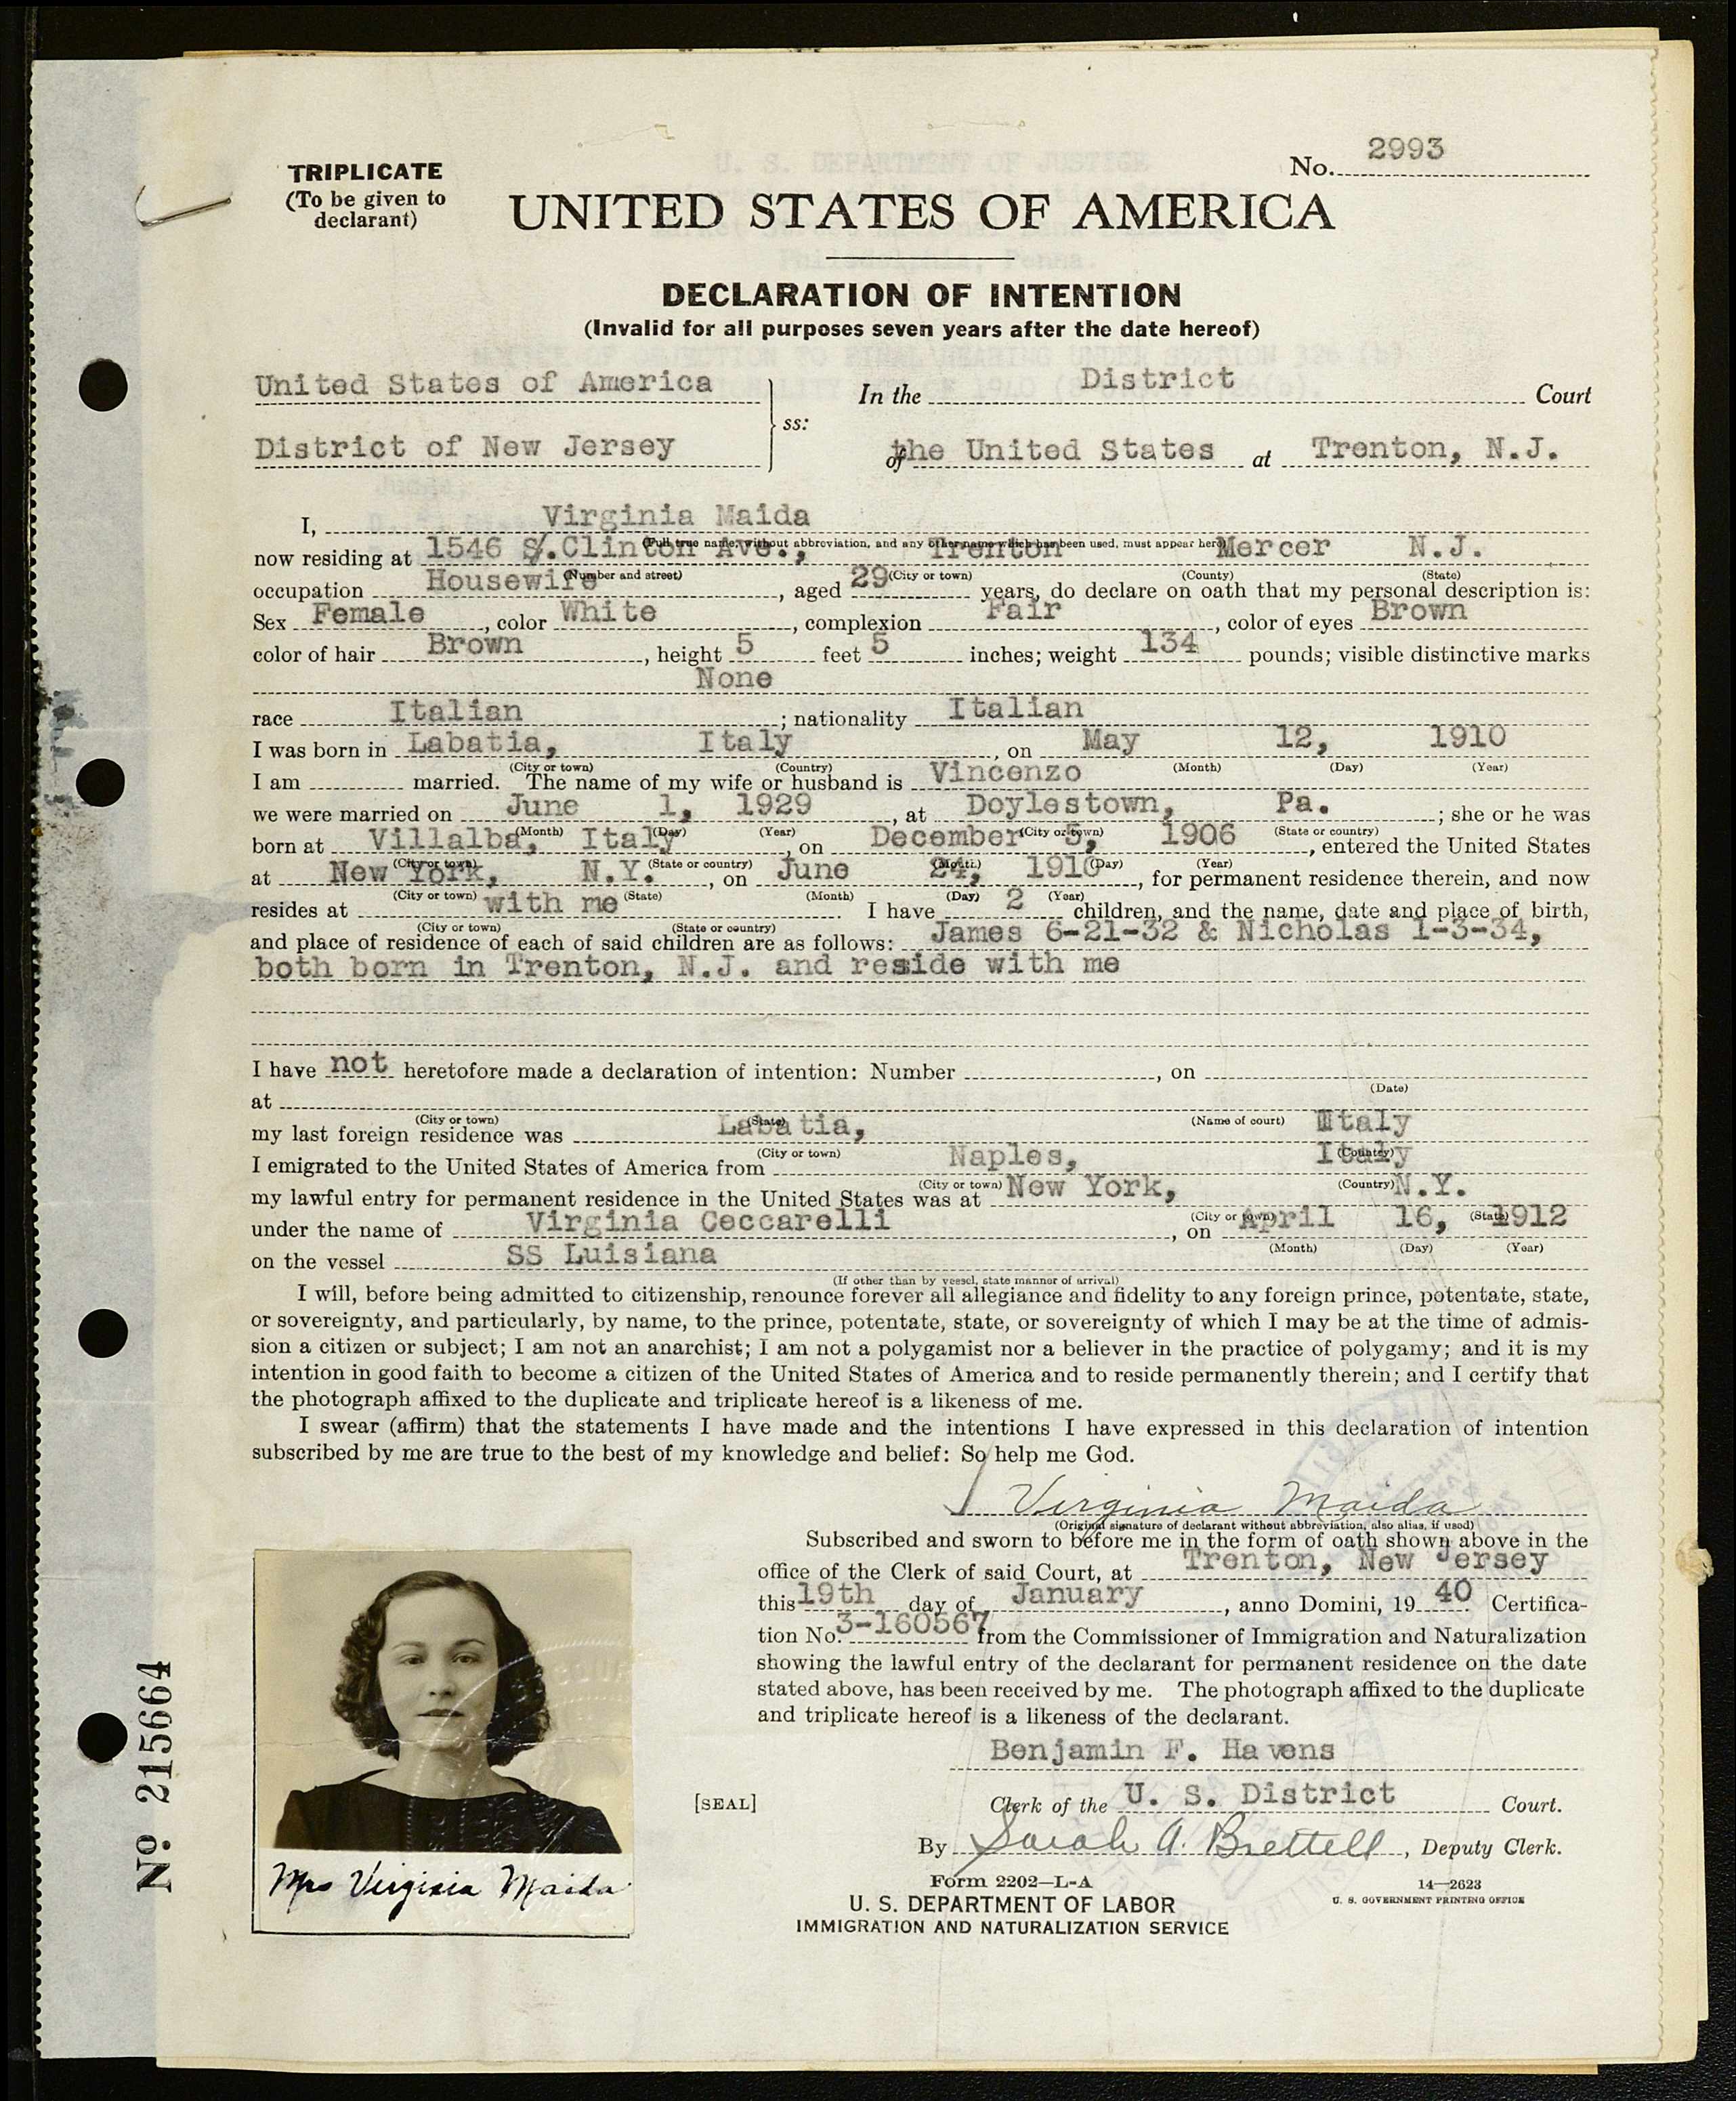 TRIPLICATE
(To be given to
declarant)
No. 2993
UNITED STATES OF AMERICA
DECLARATION OF INTENTION
(Invalid for all purposes seven years after the date hereof)
United States of America
District of New Jersey
ss:
In the District Court
of the United States at Trenton, N.J.
I, Virginia Maida
(Full true name, without abbreviation, and any other name which has been used, must appear here)
now residing at 1546 S. Clinton Ave., Trenton Mercer N.J.
(Number and street) (City or town) (County) (State)
occupation Housewife, aged 29 years, do declare on oath that my personal description is:
Sex Female, color White, complexion Fair, color of eyes Brown
color of hair Brown, height 5 feet 5 inches; weight 134 pounds; visible distinctive marks
None
race Italian; nationality Italian
I was born in Labatia, Italy, on May 12, 1910
(City or town) (Country) (Month) (Day) (Year)
I am married. The name of my wife or husband is Vincenzo
we were married on June 1, 1929, at Doylestown, Pa.; she or he was
(Month) (Day) (Year) (City or town) (State or country)
born at Villalba, Italy, on December 5, 1906, entered the United States
(City or town) (State or country) (Month) (Day) (Year)
at New York, N.Y., on June 24, 1910, for permanent residence therein, and now
(City or town) (State) (Month) (Day) (Year)
resides at with me. I have 2 children, and the name, date and place of birth,
(City or town) (State or country)
and place of residence of each of said children are as follows: James 6-21-32 & Nicholas 1-3-34,
both born in Trenton, N.J. and reside with me
I have not heretofore made a declaration of intention: Number , on
(Date)
at
(City or town) (State) (Name of court)
my last foreign residence was Labatia, Italy
(City or town) (Country)
I emigrated to the United States of America from Naples, Italy
(City or town) (Country)
my lawful entry for permanent residence in the United States was at New York, N.Y.
(City or town) (State)
under the name of Virginia Ceccarelli, on April 16, 1912
(Month) (Day) (Year)
on the vessel SS Luisiana
(If other than by vessel, state manner of arrival)
I will, before being admitted to citizenship, renounce forever all allegiance and fidelity to any foreign prince, potentate, state,
or sovereignty, and particularly, by name, to the prince, potentate, state, or sovereignty of which I may be at the time of admis-
sion a citizen or subject; I am not an anarchist; I am not a polygamist nor a believer in the practice of polygamy; and it is my
intention in good faith to become a citizen of the United States of America and to reside permanently therein; and I certify that
the photograph affixed to the duplicate and triplicate hereof is a likeness of me.
I swear (affirm) that the statements I have made and the intentions I have expressed in this declaration of intention
subscribed by me are true to the best of my knowledge and belief: So help me God.
Virginia Maida
(Original signature of declarant without abbreviation, also alias, if used)
Subscribed and sworn to before me in the form of oath shown above in the
office of the Clerk of said Court, at Trenton, New Jersey
this 19th day of January, anno Domini, 19 40 Certifica-
tion No. 3-160567 from the Commissioner of Immigration and Naturalization
showing the lawful entry of the declarant for permanent residence on the date
stated above, has been received by me. The photograph affixed to the duplicate
and triplicate hereof is a likeness of the declarant.
Benjamin F. Havens
[SEAL]
Clerk of the U. S. District Court.
By Sarah A. Brettell, Deputy Clerk.
Form 2202—L-A
14—2623
U. S. GOVERNMENT PRINTING OFFICE
U. S. DEPARTMENT OF LABOR
IMMIGRATION AND NATURALIZATION SERVICE
Mrs Virginia Maida
No. 215664